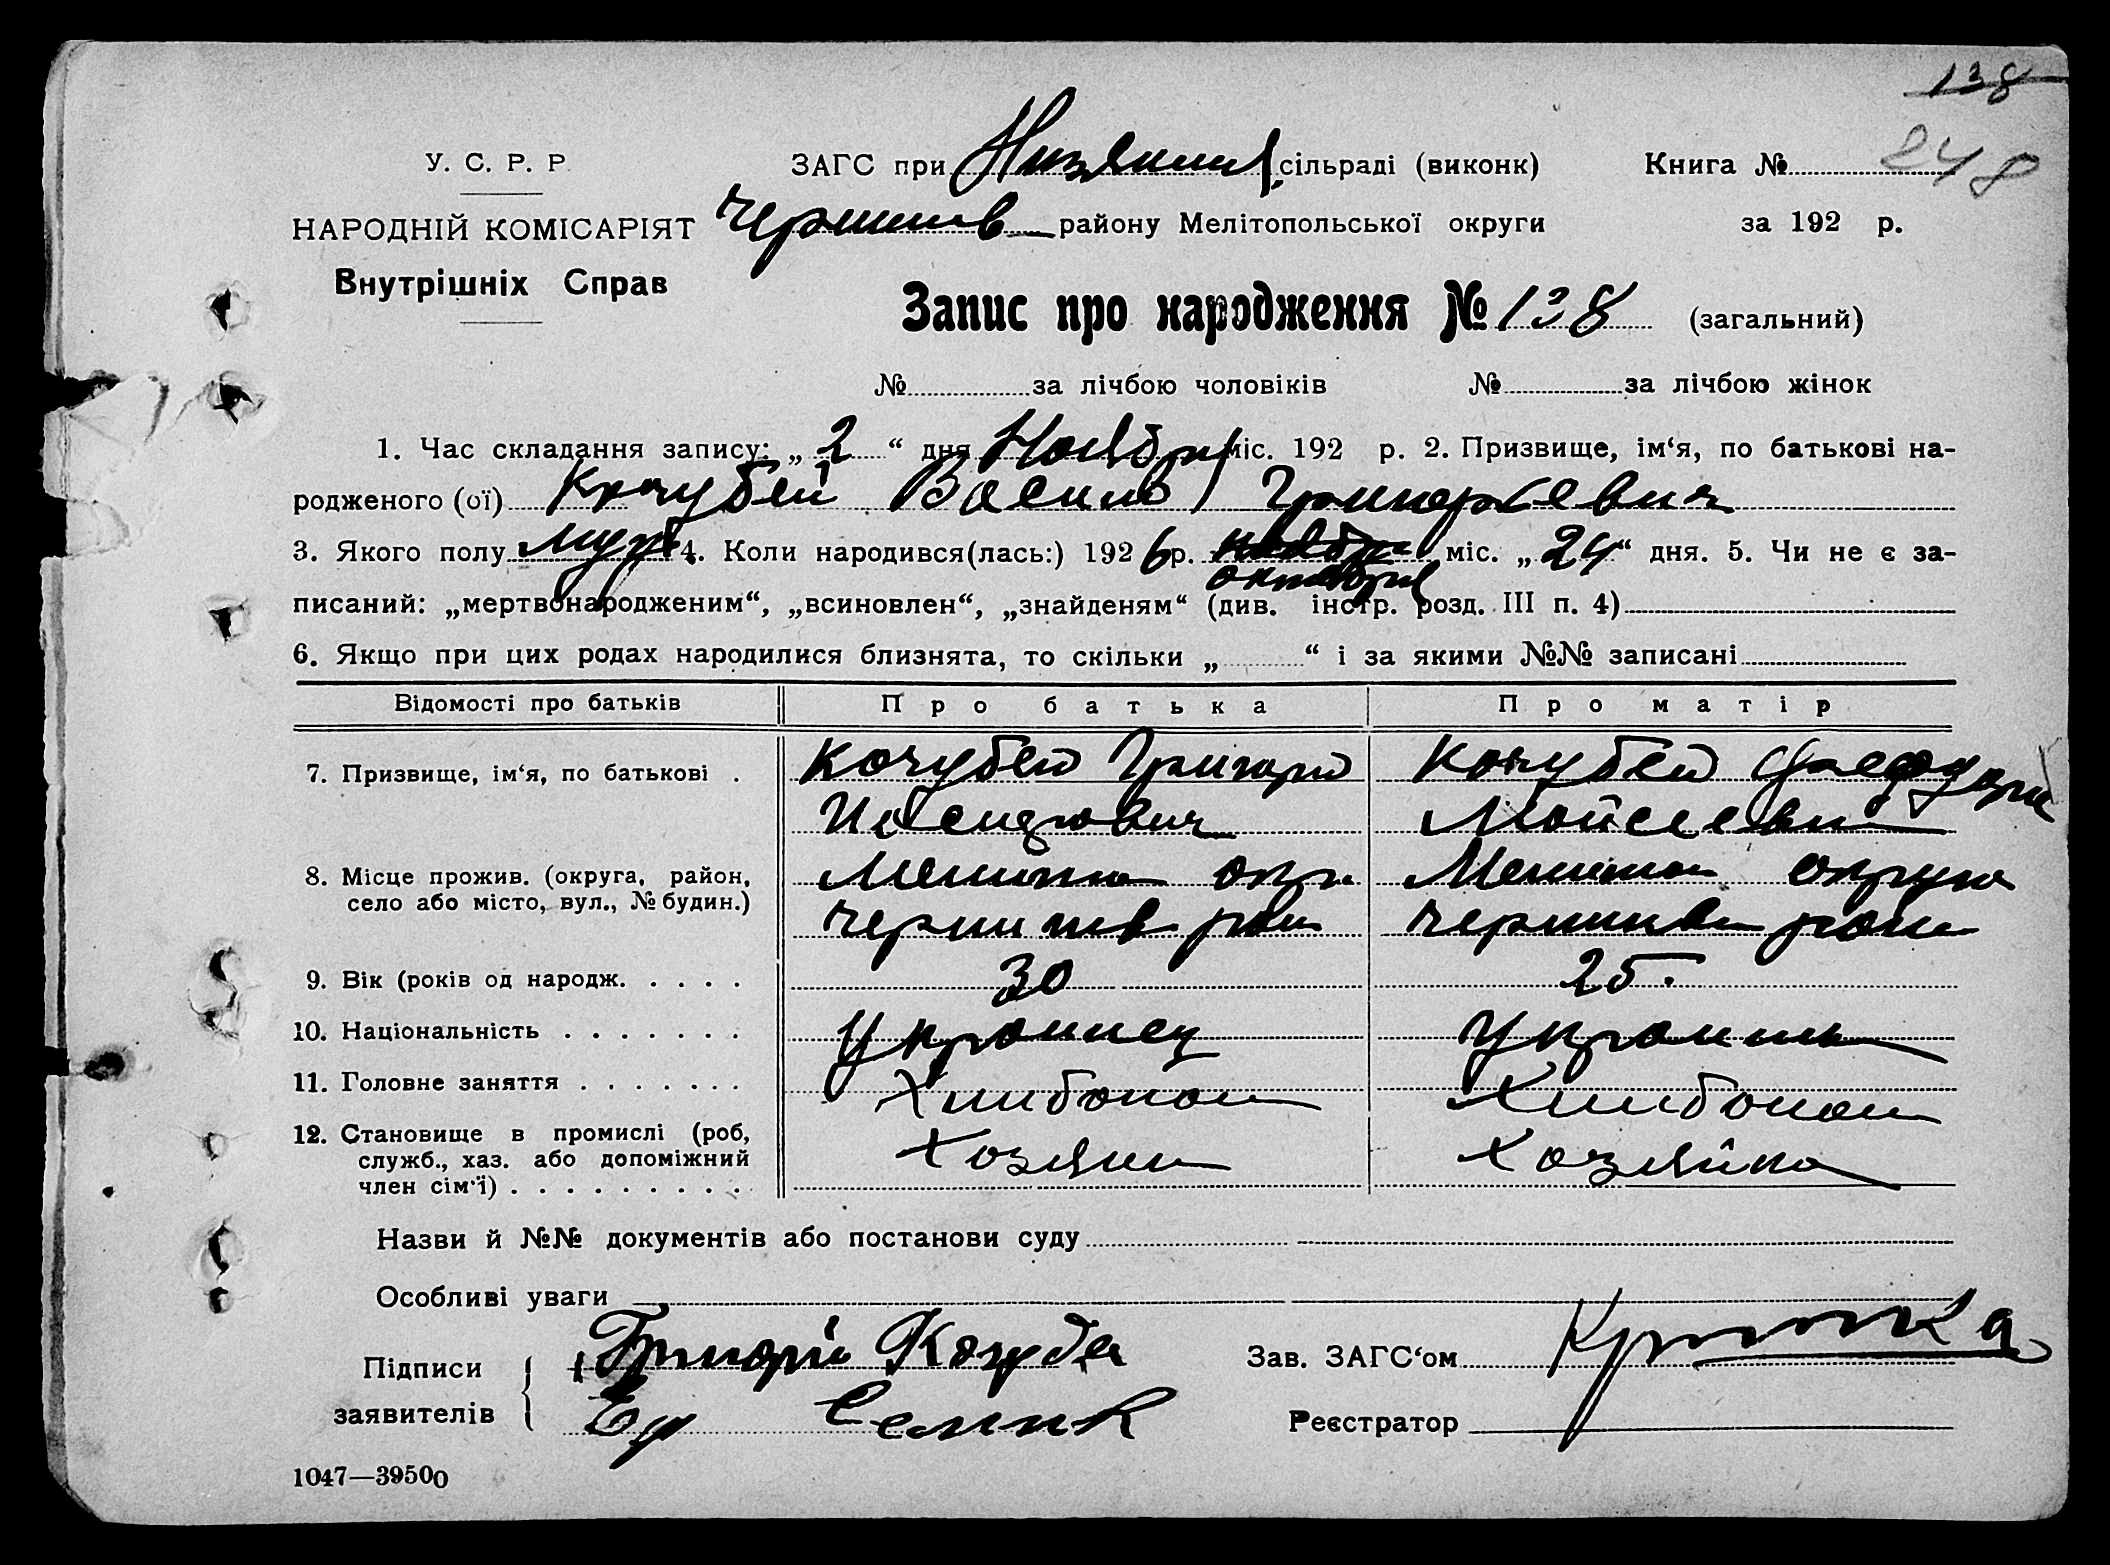 138
У. С. Р. Р.
ЗАГС при Низяни сільраді (виконк)
Книга № 248
НАРОДНІЙ КОМІСАРІЯТ
Чернигів району Мелітопольської округи
за 192 р.
Внутрішніх Справ
Запис про народження № 138 (загальний)
№ за лічбою чоловіків № за лічбою жінок
1. Час складання запису: „ 2 “ дня Ноября міс. 192 р. 2. Призвище, ім‘я, по батькові на-
родженого (ої) Кочубей Василь Григорьевич
3. Якого полу муж 4. Коли народився(лась:) 192 6 р. октября міс. „ 24 “ дня. 5. Чи не є за-
писаний: „мертвонародженим“, „всиновлен“, „знайденям“ (див. інстр. розд. III п. 4)
6. Якщо при цих родах народилися близнята, то скільки „ “ і за якими №№ записані
Відомості про батьків Про батька Про матір
7. Призвище, ім‘я, по батькові . Кочубей Григорий Кочубей
Мойсеевн
8. Місце прожив. (округа, район, Мелитоп окр Мелитоп округа
село або місто, вул., № будин.) Чернигив рай Чернигив район
9. Вік (років од народж. . . . . 30 25.
10. Національність . . . . . . . Украинец Украинка
11. Головне заняття . . . . . . . Хлибопаш Хлибопаш
12. Становище в промислі (роб, Хозяин Хозяйка
служб., хаз. або допоміжний
член сім‘ї) . . . . . . . . .
Назви й №№ документів або постанови суду
Особливі уваги
Підписи Григорій Кочубей
Зав. ЗАГС‘ом
заявителів
Реєстратор
1047—39500